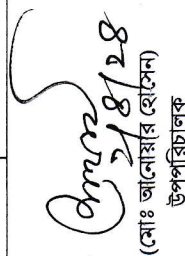 ২/৪/২৪
(মোঃ আনোয়ার হোসেন)
উপপরিচালক